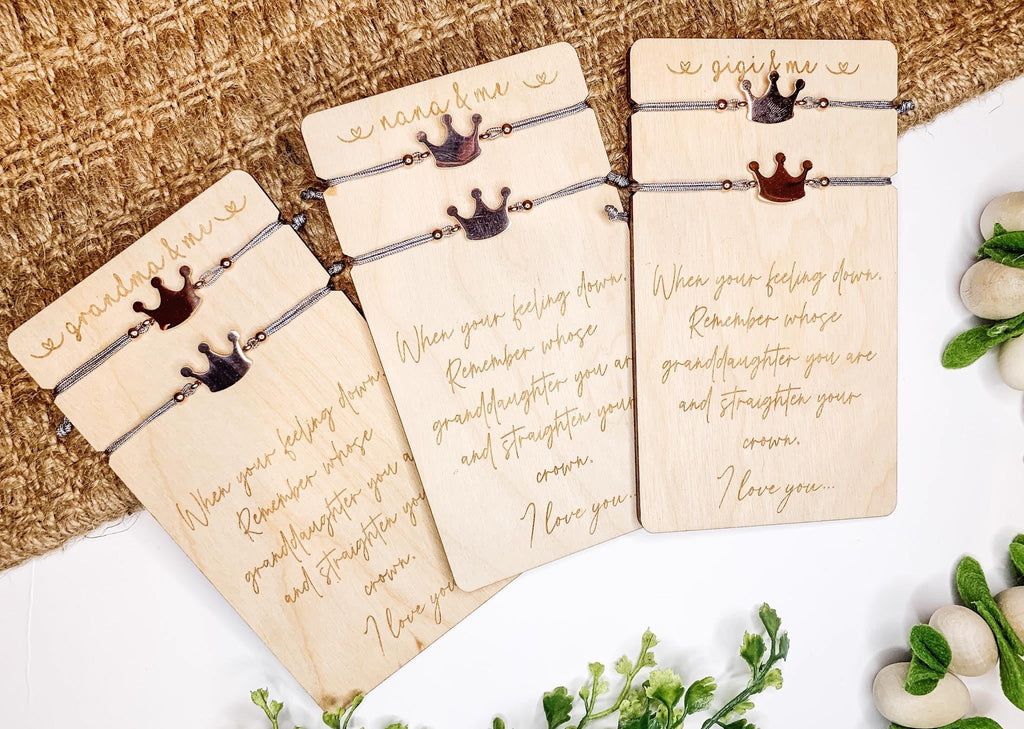 grandma & me
When your feeling down.
Remember whose
granddaughter you a
and straighten you
crown.
I love you
nana & me
When your feeling down.
Remember whose
granddaughter you ar
and straighten your
crown.
I love you...
gigi & me
When your feeling down.
Remember whose
granddaughter you are
and straighten your
crown.
I love you...